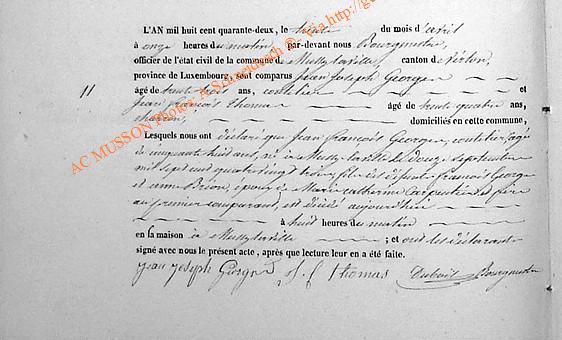 L'AN mil huit cent quarante-deux, le trente du mois d'avril
à onze heures du matin par-devant nous Bourgmestre,
officier de l'état civil de la commune de Mussy-la-ville, canton de Virton,
province de Luxembourg, sont comparus Jean Joseph Georges
11 âgé de trente trois ans, coutelier et
Jean François Thomas âgé de trente quatre ans,
charron, domiciliés en cette commune,
Lesquels nous ont déclaré que Jean François Georges, coutelier, âgé
de cinquante huit ans, né à Mussy-la-ville le douze septembre
mil sept cent quatre vingt trois, fils de défunts françois George
et anne Brion, époux de Marie catherine Carpentier et père
au premier comparant, est décédé aujourd'hui
à huit heures du matin
en sa maison à Mussy-la-ville ; et ont les déclarants
signé avec nous le présent acte, après que lecture leur en a été faite.
jean joseph Georges J. f Thomas Bourgmestre
AC MUSSON Photos: A. Schrietzbach © - via http://g